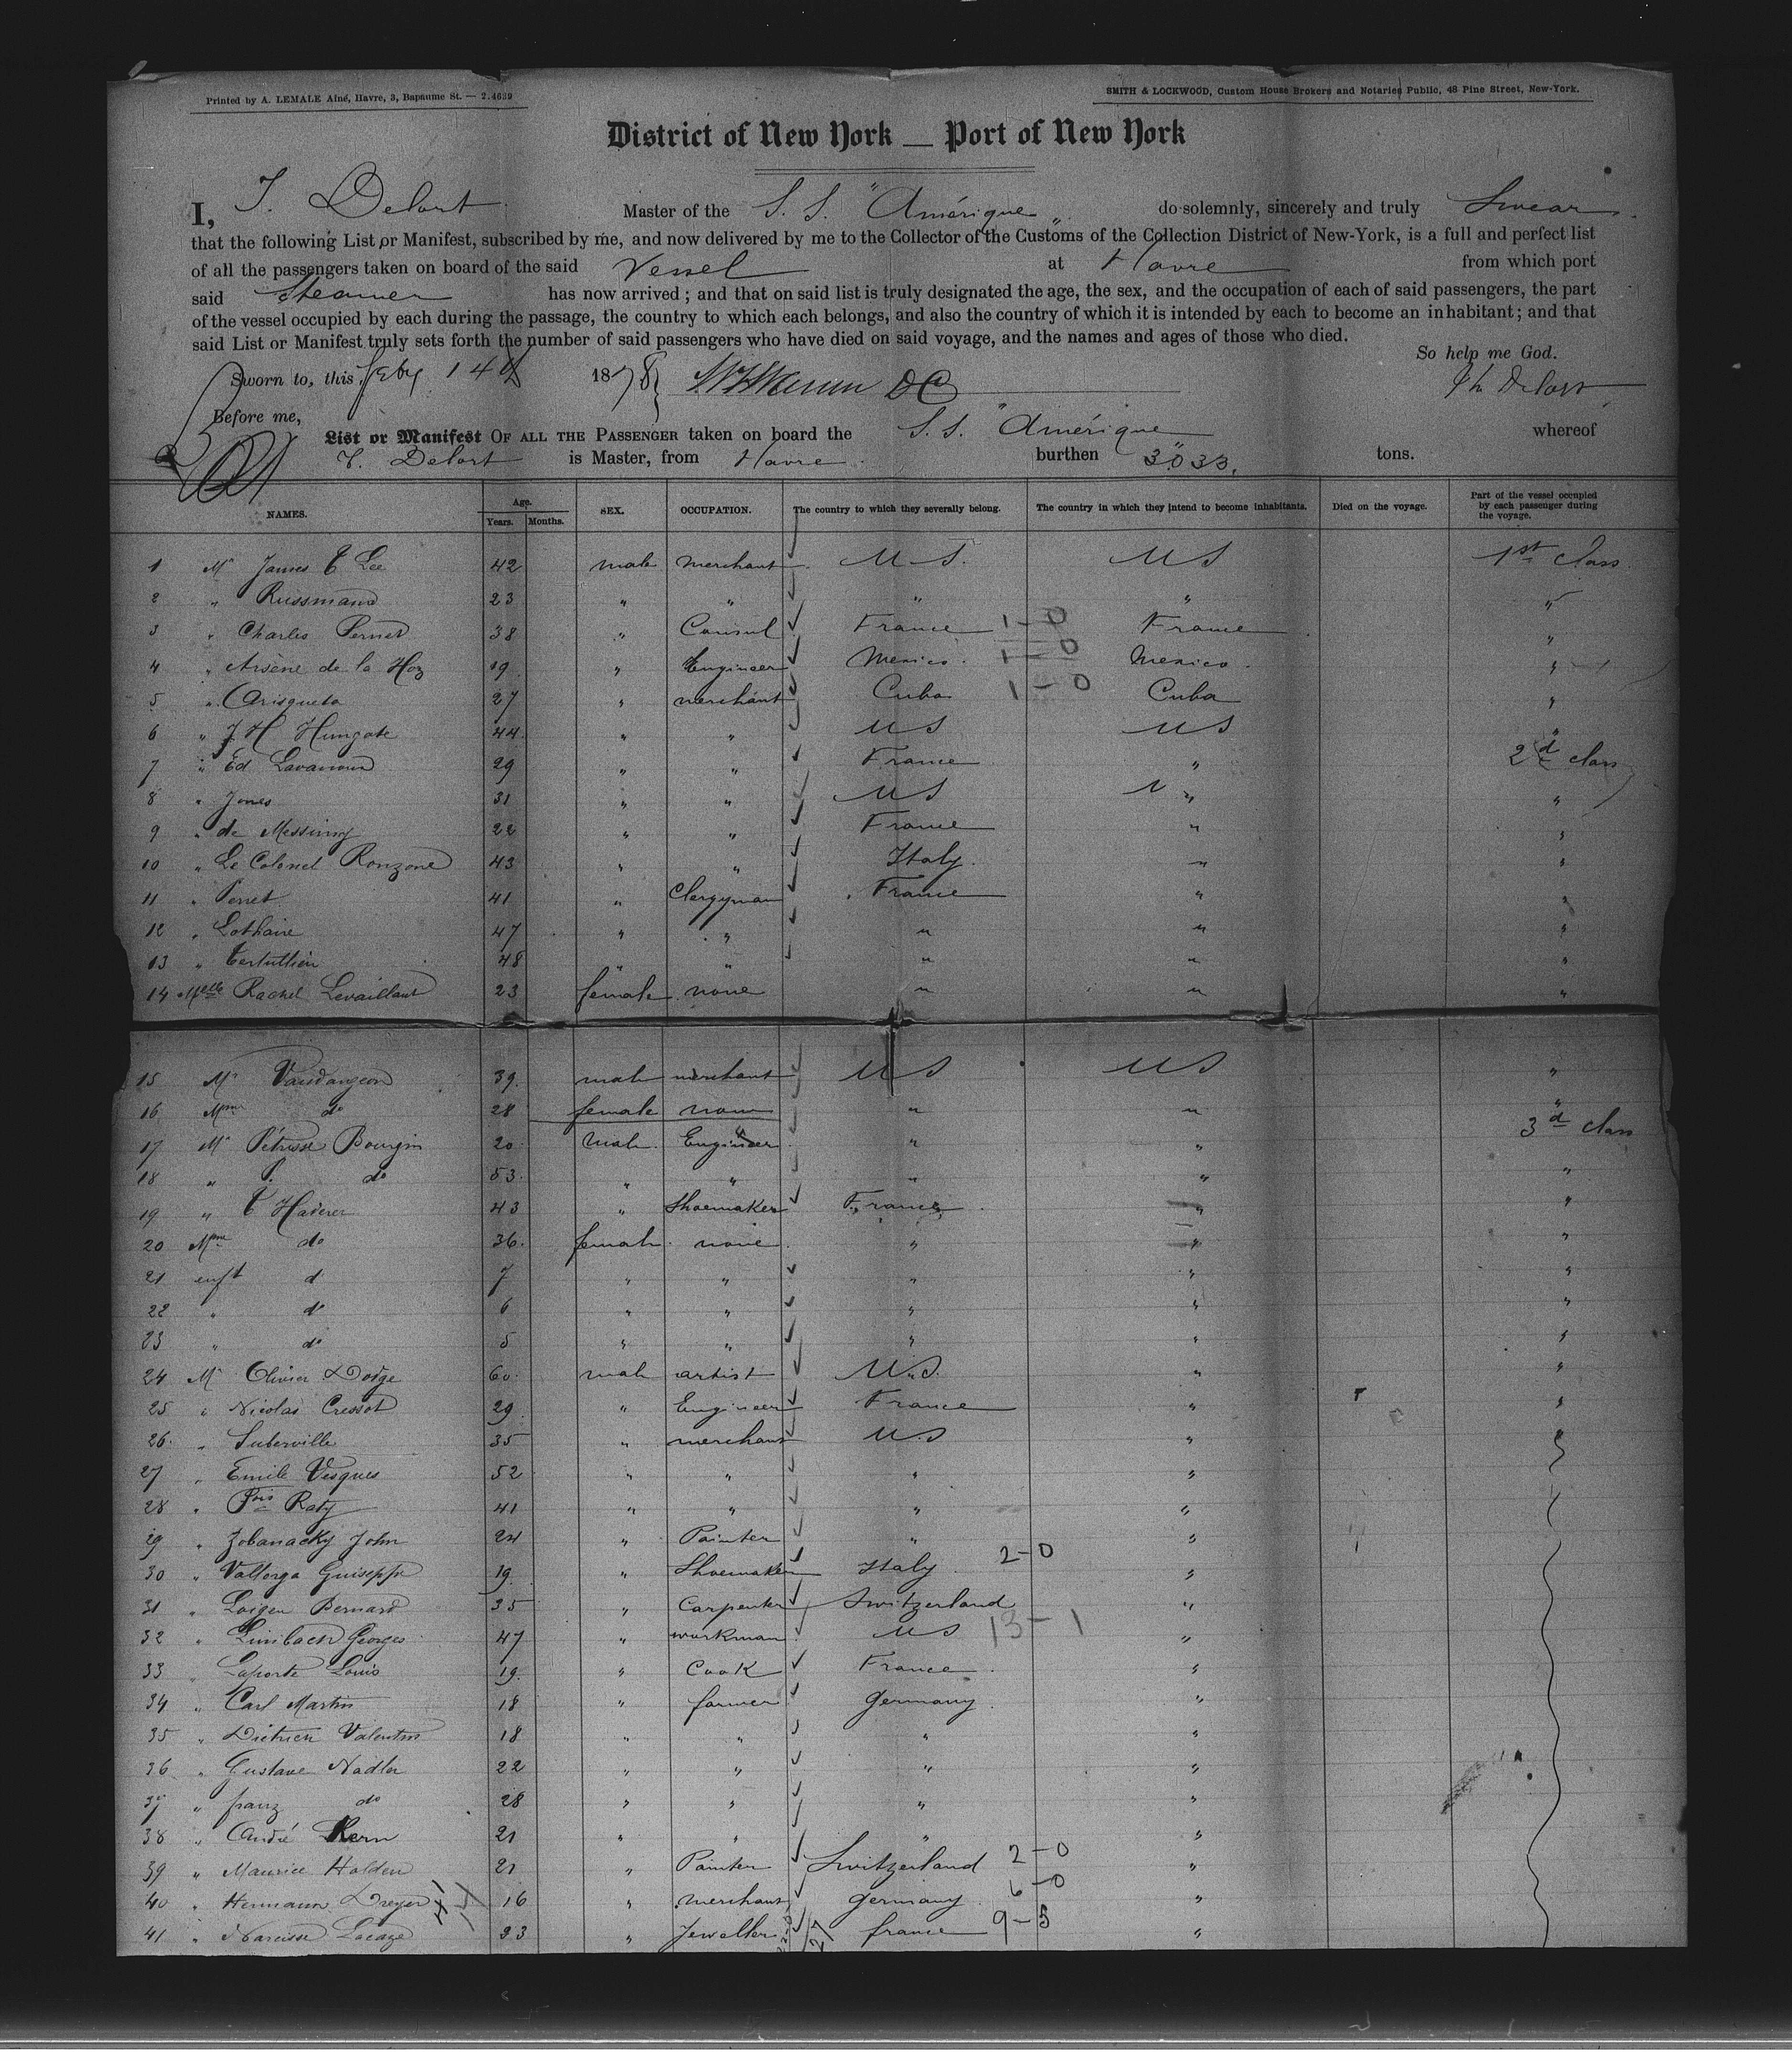 Printed by A. LEMALE Aîné, Havre, 3, Bapaume St. — 2.4639
SMITH & LOCKWOOD, Custom House Brokers and Notaries Public, 48 Pine Street, New-York.
District of New York — Port of New York
I, T. Delort Master of the S. S. "Amérique" do solemnly, sincerely and truly Swear
that the following List or Manifest, subscribed by me, and now delivered by me to the Collector of the Customs of the Collection District of New-York, is a full and perfect list
of all the passengers taken on board of the said Vessel at Havre from which port
said Steamer has now arrived; and that on said list is truly designated the age, the sex, and the occupation of each of said passengers, the part
of the vessel occupied by each during the passage, the country to which each belongs, and also the country of which it is intended by each to become an inhabitant; and that
said List or Manifest truly sets forth the number of said passengers who have died on said voyage, and the names and ages of those who died.
So help me God.
Sworn to, this Feby 14th 1878 Delort
Before me,
List or Manifest OF ALL THE PASSENGER taken on board the S. S. "Amérique" whereof
T. Delort is Master, from Havre burthen 3033 tons.
NAMES. Age. Years. Months. SEX. OCCUPATION. The country to which they severally belong. The country in which they intend to become inhabitants. Died on the voyage. Part of the vessel occupied by each passenger during the voyage.
1 Mr James T Lee 42 male merchant U S. U S 1st class
2 " Russmand 23 " " " " "
3 " Charles Pernet 38 " Consul France 1-0 France "
4 " Arsène de la Hoz 19 " Engineer Mexico 1-0 Mexico "
5 " Arisqueta 27 " merchant Cuba 1-0 Cuba "
6 " J H Hungate 44 " " U S U S "
7 " Ed 29 " " France " 2d class
8 " Jones 31 " " U S " "
9 " de Messimy 22 " " France " "
10 " Le Colonel Ronzone 43 " " Italy " "
11 " Perret 41 " Clergyman France " "
12 " Lothaire 47 " " " " "
13 " Tertullien 48 " " " " "
14 Melle Rachel Levaillant 23 female none " " "
15 Mr Vaudangeon 39 male merchant U S U S "
16 Mme do 28 female none " " "
17 Mr Pétrusse Bourgin 20 male Engineer " " 3d class
18 " P. do 53 " " " " "
19 " T Haderer 43 " Shoemaker France " "
20 Mme do 36 female none " " "
21 enft do 7 " " " " "
22 " do 6 " " " " "
23 " do 5 " " " " "
24 Mr Olivier Dodge 60 male artist U.S. " "
25 " Nicolas Cressot 29 " Engineer France " "
26 " Suberville 35 " merchant U.S " "
27 " Emile Vesques 52 " " " "
28 " Fois Raty 41 " " " "
29 " Zobanacky John 24 " Painter " "
30 " Vallorga Guiseppe 19 " Shoemaker Italy 2-0 "
31 " Loigen Bernard 35 " Carpenter Switzerland "
32 " Limbach Georges 47 " workman U S 13-1 "
33 " Laporte Louis 19 " Cook France "
34 " Carl Martin 18 " farmer Germany "
35 " Dietrich Valentin 18 " " " "
36 " Gustave Nadler 22 " " " "
37 " franz do 28 " " " "
38 " André Kern 21 " " " "
39 " Maurice Holden 21 " Painter Switzerland 2-0 "
40 " Hermann Dreyer 16 " merchant Germany 6-0 "
41 " Narcisse Lacaze 23 " Jeweller france 9-5 "